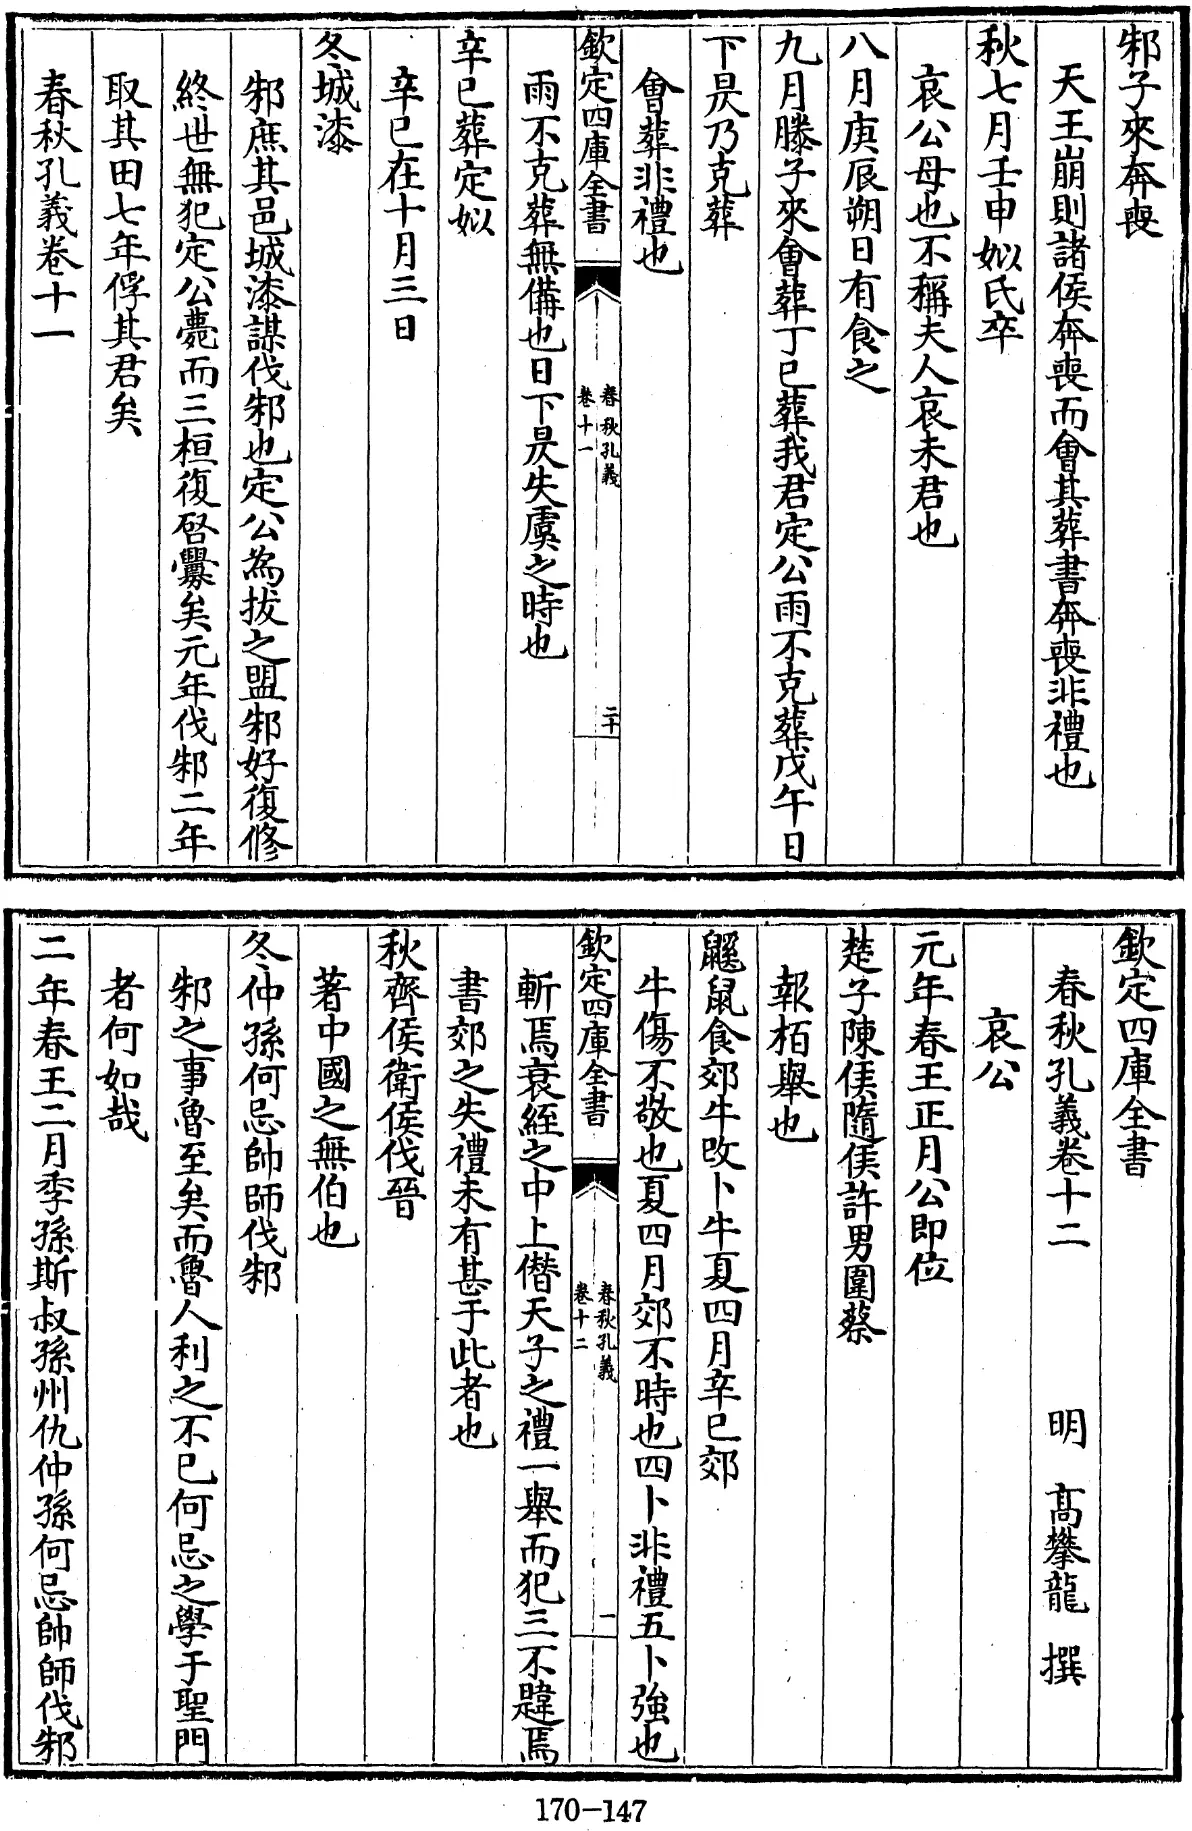 邾子來奔喪
天王崩則諸侯奔喪而會其葬書奔喪非禮也
秋七月壬申姒氏卒
哀公母也不稱夫人哀未君也
八月庚辰朔日有食之
九月滕子來會葬丁巳葬我君定公雨不克葬戊午日
下昃乃克葬
會葬非禮也
欽定四庫全書
春秋孔義
卷十一
二十
雨不克葬無備也日下昃失虞之時也
辛巳葬定姒
辛巳在十月三日
冬城漆
邾庶其邑城漆謀伐邾也定公為拔之盟邾好復修
終世無犯定公薨而三桓復啓釁矣元年伐邾二年
取其田七年俘其君矣
春秋孔義卷十一
欽定四庫全書
春秋孔義卷十二 明 高攀龍 撰
哀公
元年春王正月公即位
楚子陳侯隨侯許男圍蔡
報栢舉也
鼷鼠食郊牛改卜牛夏四月辛巳郊
牛傷不敬也夏四月郊不時也四卜非禮五卜強也
欽定四庫全書
春秋孔義
卷十二
一
斬焉衰絰之中上僭天子之禮一舉而犯三不韙焉
書郊之失禮未有甚于此者也
秋齊侯衛侯伐晉
著中國之無伯也
冬仲孫何忌帥師伐邾
邾之事魯至矣而魯人利之不已何忌之學于聖門
者何如哉
二年春王二月季孫斯叔孫州仇仲孫何忌帥師伐邾
170-147